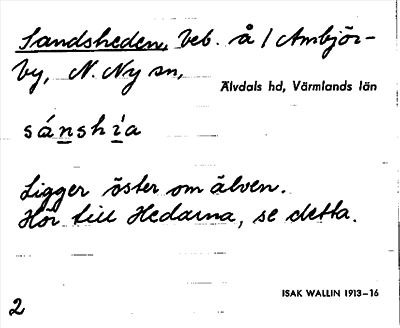 Sandsheden, beb. å / Ambjör-
by, N. Ny sn,
Älvdals hd, Värmlands län
sánshia
Ligger öster om älven.
Hör till Hedarna, se detta.
ISAK WALLIN 1913–16
2